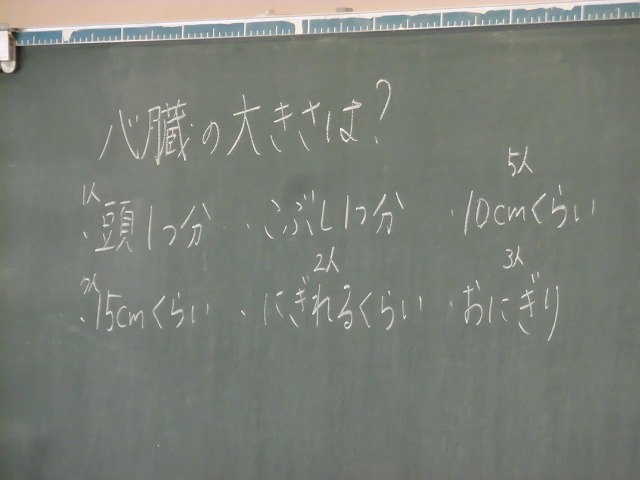 心臓の大きさは?
5人
1人
・頭1つ分 ・こぶし1つ分 ・10cmくらい
2人 3人
・15cmくらい ・にぎれるくらい ・おにぎり